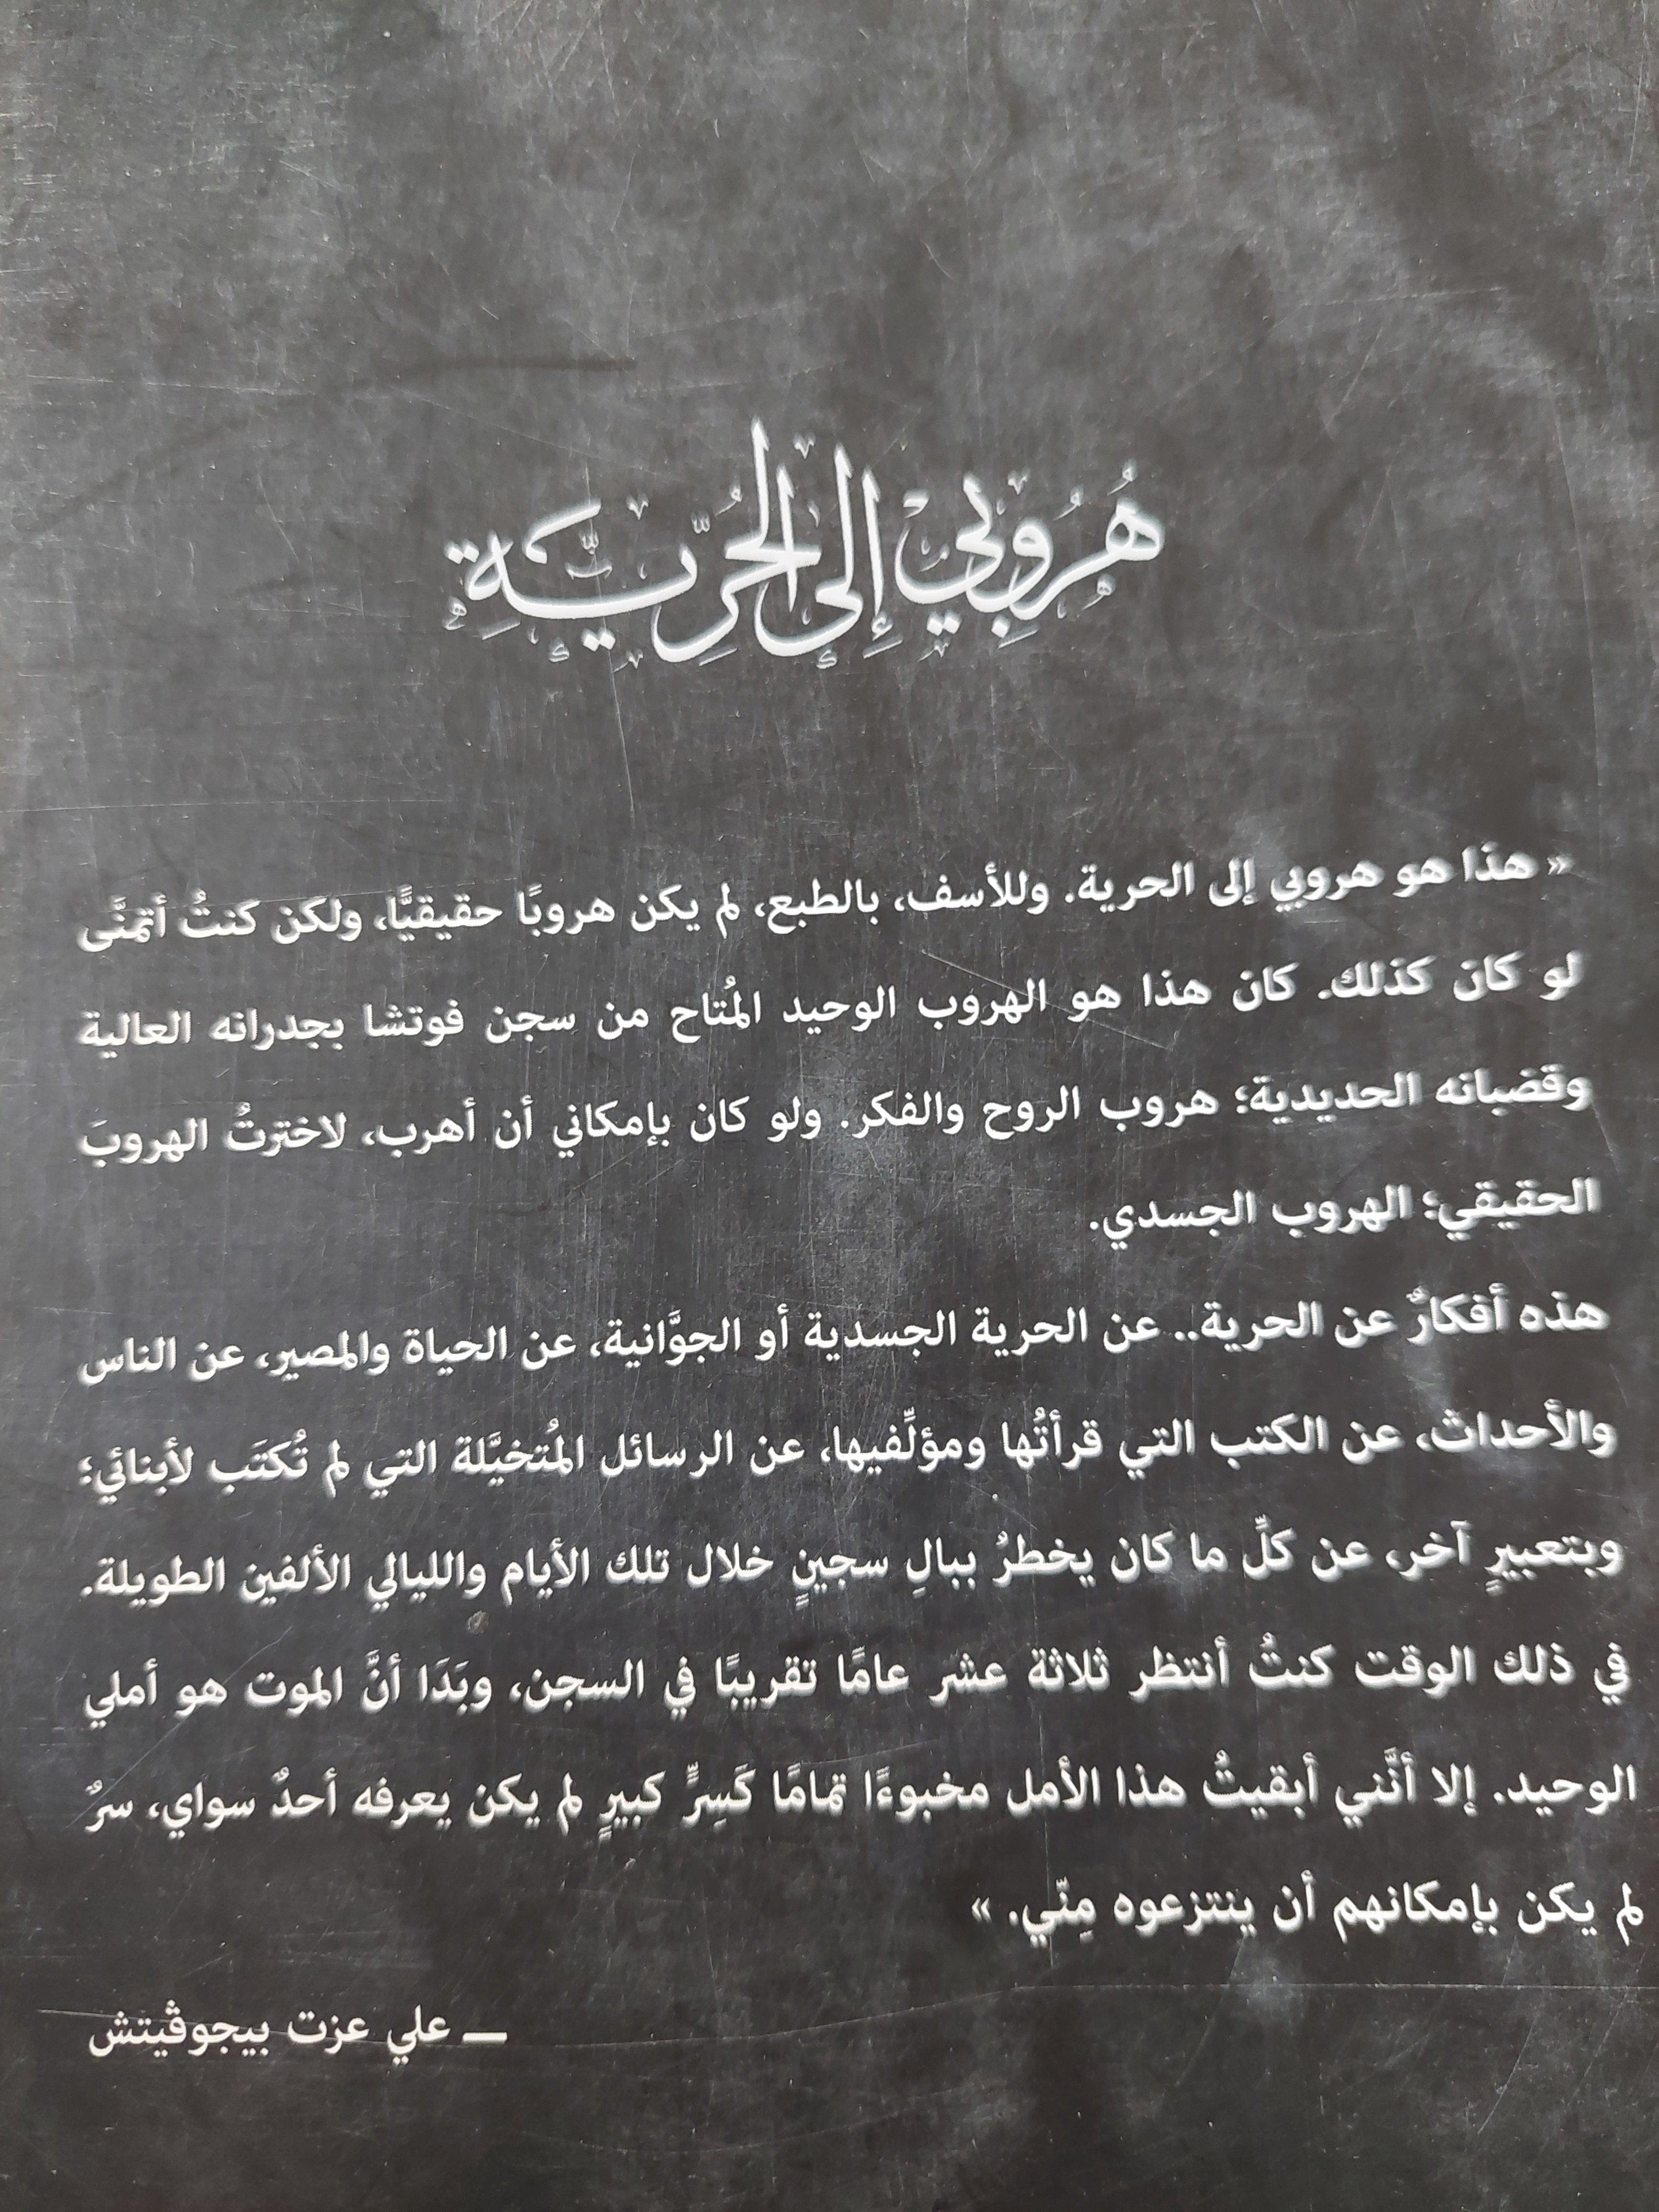 هُرُوبِي إِلى الحُرِّيَّةِ
« هذا هو هروبي إلى الحرية. وللأسف، بالطبع، لم يكن هروبًا حقيقيًّا، ولكن كنتُ أتمنَّى
لو كان كذلك. كان هذا هو الهروب الوحيد المُتاح من سجن فوتشا بجدرانه العالية
وقضبانه الحديدية؛ هروب الروح والفكر. ولو كان بإمكاني أن أهرب، لاخترتُ الهروبَ
الحقيقي؛ الهروب الجسدي.
هذه أفكارٌ عن الحرية.. عن الحرية الجسدية أو الجوَّانية، عن الحياة والمصير، عن الناس
والأحداث، عن الكتب التي قرأتُها ومؤلِّفيها، عن الرسائل المُتخيَّلة التي لم تُكتَب لأبنائي؛
وبتعبيرٍ آخر، عن كلِّ ما كان يخطرُ ببالِ سجينٍ خلال تلك الأيام والليالي الألفين الطويلة.
في ذلك الوقت كنتُ أنتظر ثلاثة عشر عامًا تقريبًا في السجن، وبَدَا أنَّ الموت هو أملي
الوحيد. إلا أنَّني أبقيتُ هذا الأمل مخبوءًا تمامًا كَسِرٍّ كبيرٍ لم يكن يعرفه أحدٌ سواي، سرٌ
لم يكن بإمكانهم أن ينتزعوه مِنّي. »
ـــ علي عزت بيجوڤيتش